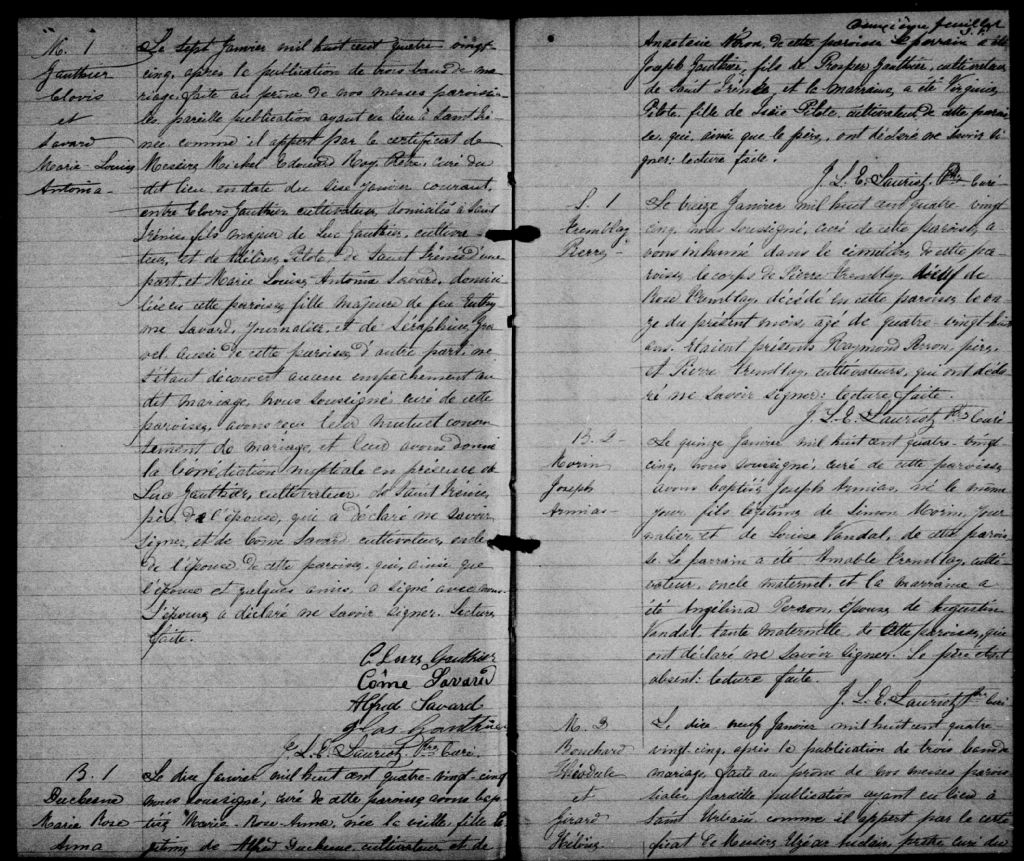 M. 1
Gauthier
Clovis
et
Savard
Marie-Louise
Antonia
Le sept Janvier mil huit cent quatre-vingt-
cinq, après la publication de trois bans de ma
riage, faite au prône de nos messes paroissia-
les, pareille publication ayant eu lieu à Saint Iré-
née comme il appert par le certificat de
Messire Michel Edouard Roy, Ptre, curé du
dit lieu en date du six Janvier courant,
entre Clovis Gauthier cultivateur, domicilié à Saint
Irénée, fils majeur de Luc Gauthier, cultiva-
teur, et de Pilote, de Saint Irénée d'une
part, et Marie Louise Antonia Savard, domici-
liée en cette paroisse, fille majeure de feu Euthy
me Savard, journalier, et de Séraphine Gra-
vel aussi de cette paroisse, d'autre part; ne
s'étant découvert aucun empêchement au
dit mariage, nous soussigné, curé de cette
paroisse, avons reçu leur mutuel consen-
tement de mariage, et leur avons donné
la bénédiction nuptiale en présence de
Luc Gauthier, cultivateur, de Saint Irénée,
père de l'épouse, qui a déclaré ne savoir
signer, et de Côme Savard cultivateur, oncle
de l'épouse de cette paroisse, qui, ainsi que
l'épouse et quelques amis, a signé avec nous.
L'époux a déclaré ne savoir signer. Lecture
faite.
Gauthier
Côme Savard
Alfred Savard
Gauthier
J. L. E. Lauriot, Ptre Curé.
B. 1
Duchesne
Marie Rose
Anna
Le dix Janvier mil huit cent quatre-vingt-cinq
nous soussigné, curé de cette paroisse avons bap-
tisé Marie-Rose-Anna, née la veille, fille lé
gitime de Alfred Duchesne, cultivateur et de
deuxième feuillet
Anastasie Néron, de cette paroisse. Le parrain a été
Joseph Gauthier, fils de Prosper Gauthier, cultivateur
de Saint Irénée, et la marraine, a été Virginie
Pilote, fille de Pilote, cultivateur de cette parois
se, qui, ainsi que le père, ont déclaré ne savoir si
gner: lecture faite.
J. L. E. Lauriot, Ptre Curé
S. 1
Tremblay
Pierre
Le treize Janvier mil huit cent quatre-vingt
cinq, nous soussigné, curé de cette paroisse, a-
vons inhumé dans le cimetière de cette pa-
roisse, le corps de Pierre Tremblay, veuf de
Rose Tremblay, décédé en cette paroisse le on-
ze du présent mois, agé de quatre-vingt huit
ans. Étaient présents Raymond Perron, père,
et Pierre Tremblay, cultivateurs, qui ont décla-
ré ne savoir signer: lecture faite.
J. L. E. Lauriot, Ptre Curé
B. 2
Morin
Joseph
Armias
Le quinze Janvier mil huit cent quatre-vingt
cinq, nous soussigné, curé de cette paroisse,
avons baptisé Joseph Armias, né le même
jour, fils légitime de Simon Morin, jour
nalier, et de Louise Vandal, de cette parois
se. Le parrain a été Amable Tremblay, culti-
vateur, oncle maternel, et la marraine a
été Angélina Perron, épouse de Augustin
Vandal, tante maternelle, de cette paroisse, qui
ont déclaré ne savoir signer. Le père était
absent: lecture faite.
J. L. E. Lauriot, Ptre Curé
M. 2
Bouchard
Théodule
et
Girard
Héloïse
Le dix neuf Janvier mil huit cent quatre
vingt-cinq, après la publication de trois bans de
mariage, faite au prône de nos messes parois-
siales, pareille publication ayant eu lieu à
Saint Urbain comme il appert par le certi
ficat de Messire prêtre curé du